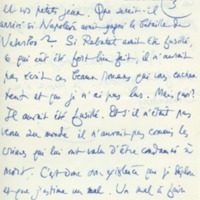 3
Un vos petits jeux. Que serait-il
arrivé si Napoléon avait gagné la bataille de
Waterloo? Si Rebatet avait été fusillé,
ce qui eût été fort bien fait, il n'aurait
pas écrit ces beaux romans qui vous enchan
tent et que je n'ai pas lus. Mais quoi?
Il aurait été fusillé. Et s'il n'était pas
venu au monde il n'aurait pas commis les
crimes qui lui ont valu d'être condamné à
mort. C'est donc son existence que je déplore
et que j'estime un mal. Un mal à faire